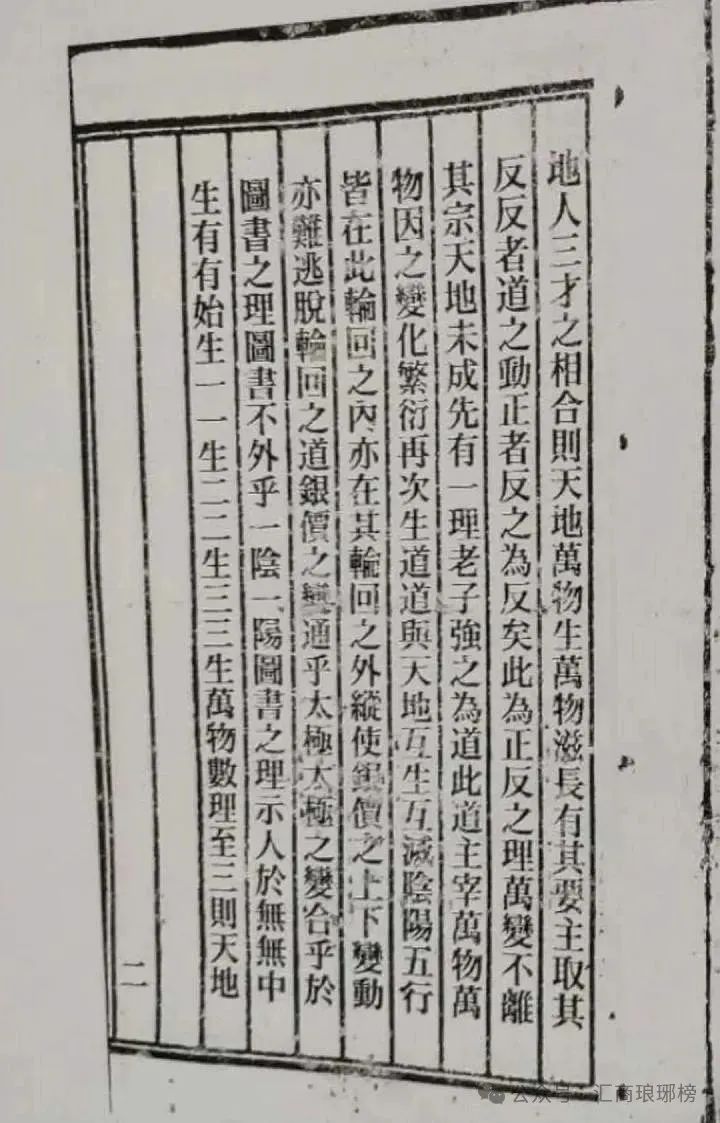 地人三才之相合則天地萬物生萬物滋長有其要主取其
反反者道之動正者反之為反矣此為正反之理萬變不離
其宗天地未成先有一理老子強之為道此道主宰萬物萬
物因之變化繁衍再次生道道與天地互生互減陰陽五行
皆在此輪回之內亦在其輪回之外縱使銀價之上下變動
亦難逃脫輪回之道銀價之變通乎太極太極之變合乎於
圖書之理圖書不外乎一陰一陽圖書之理示人於無無中
生有有始生一一生二二生三三生萬物數理至三則天地
二
公众号·汇商琅琊榜